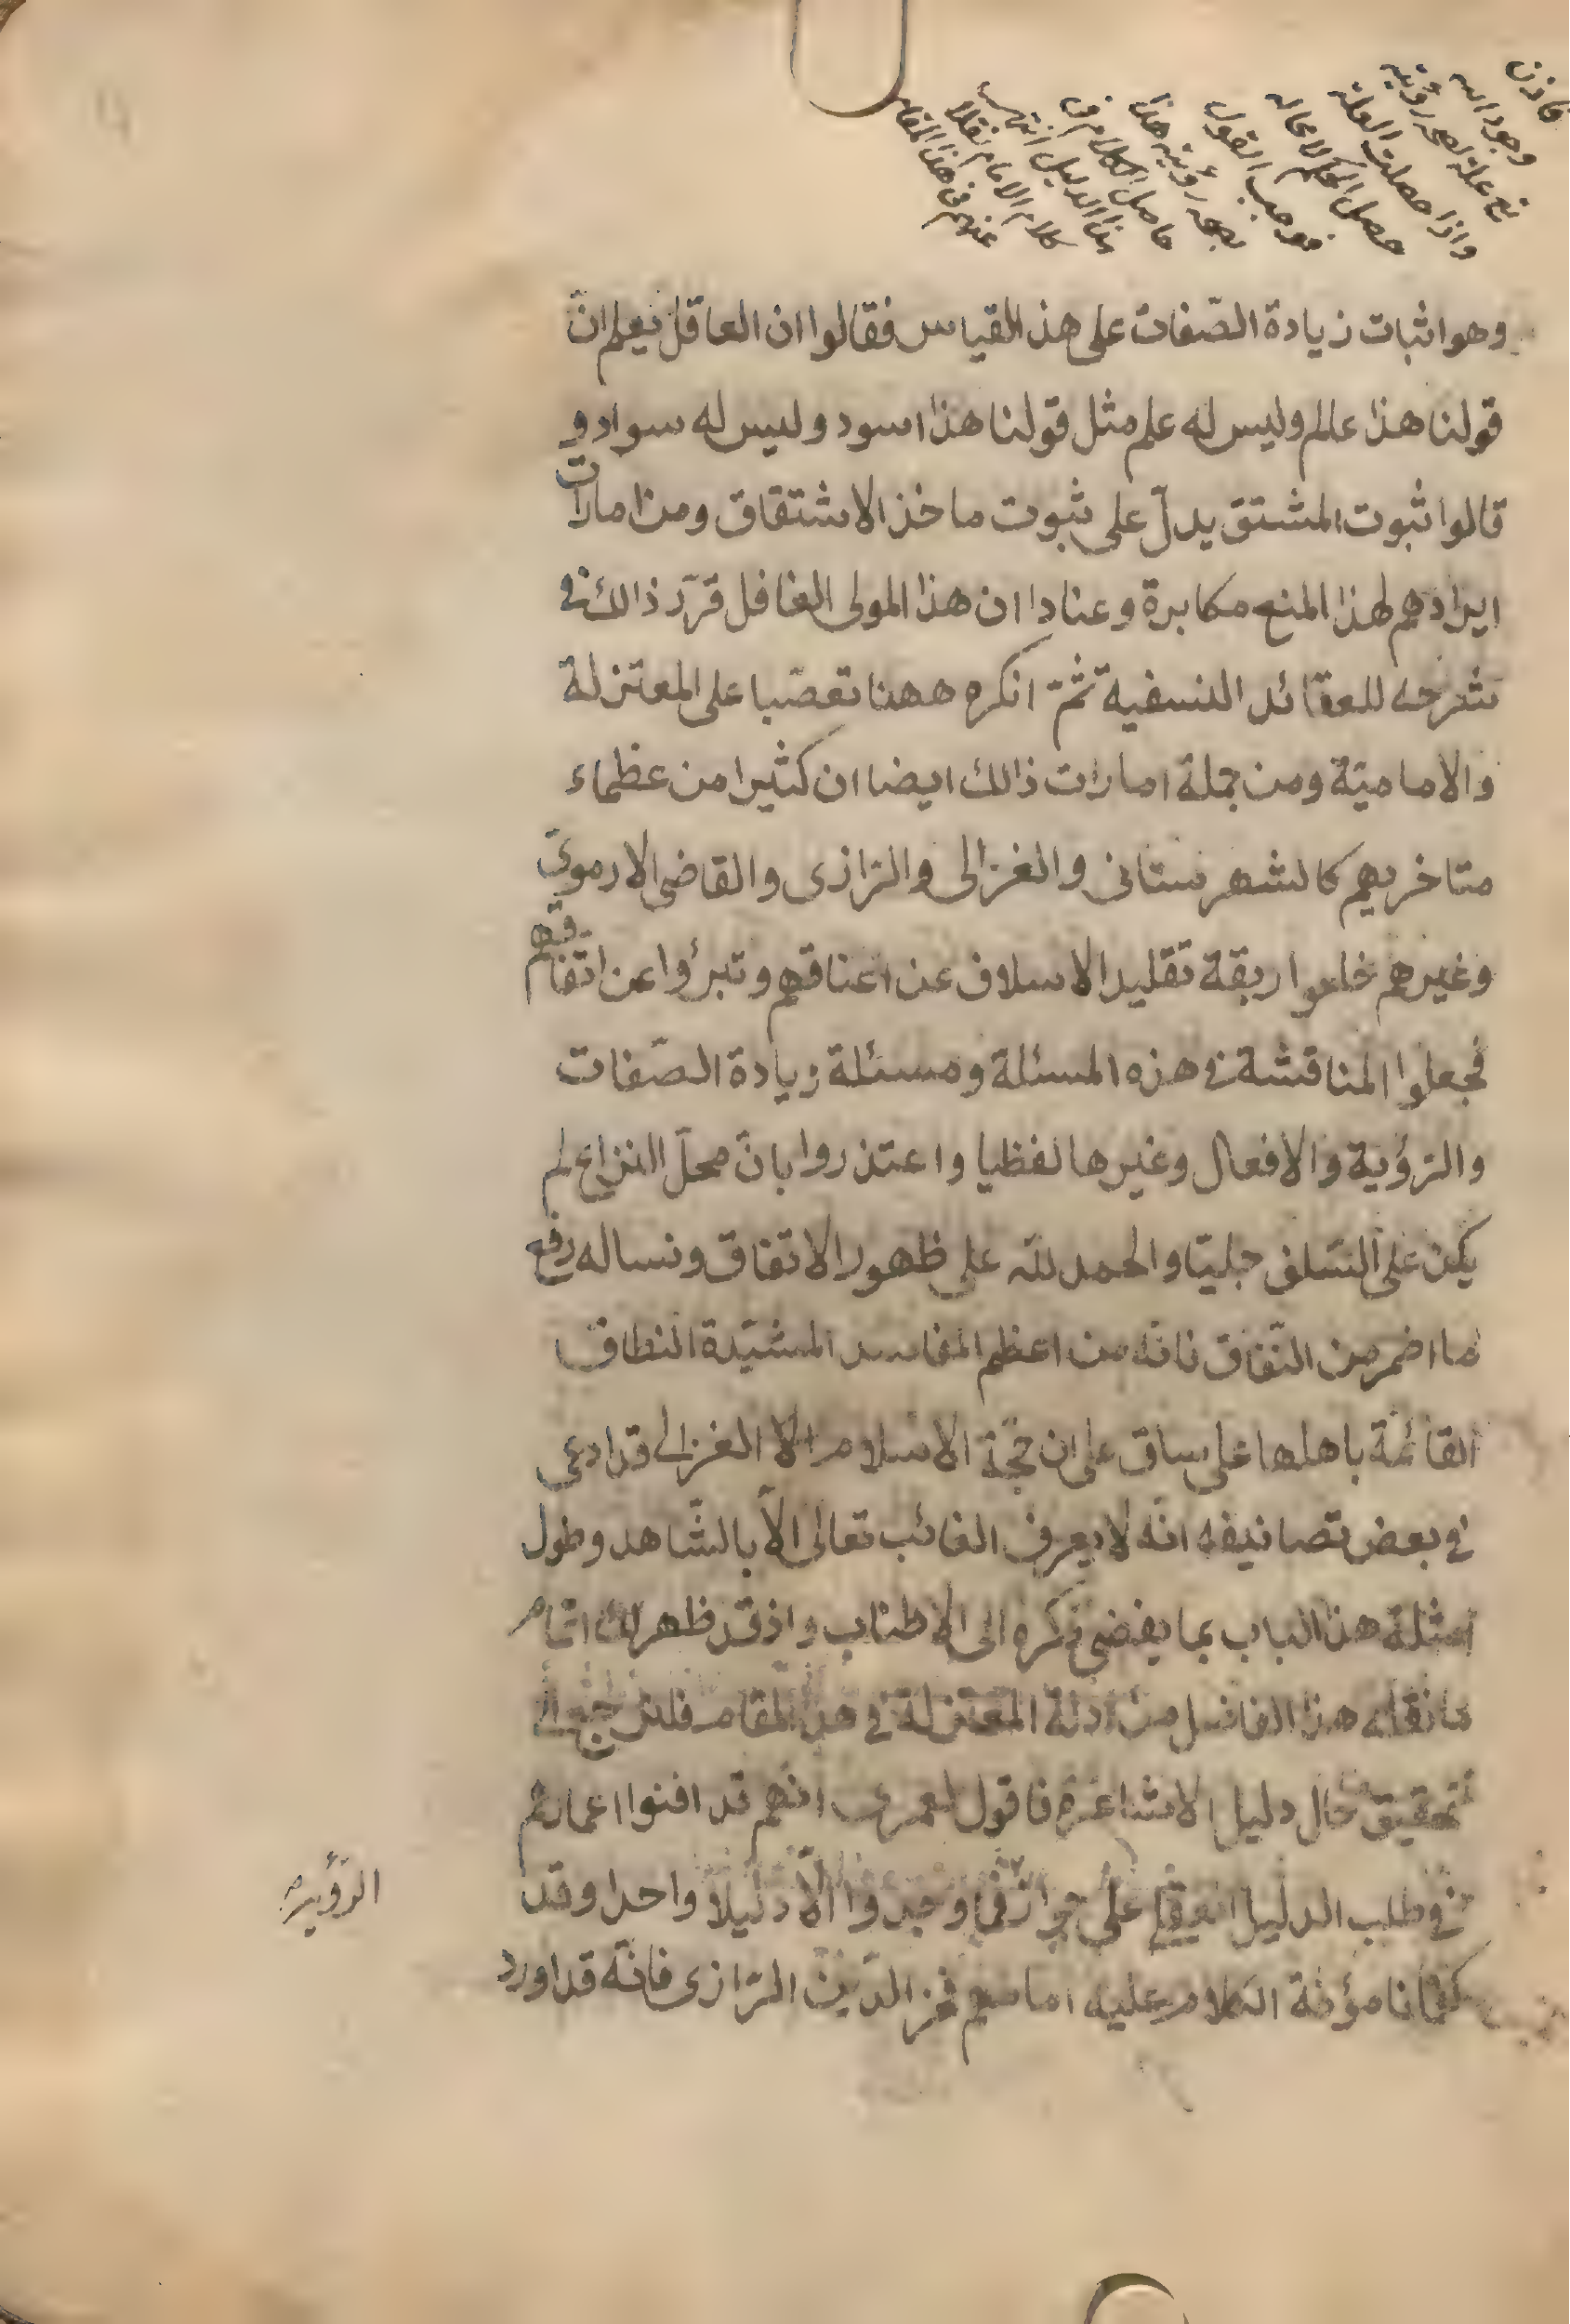 فاذن
وجود الله
تع علة لصحة رؤيته
واذا حصلت العلة
حصل الحكم لا محاله
فوجب القول
بصحة رؤيته هذا
حاصل الكلام فى
هذا الدليل انتهى
كلام الامام نقلا
عنهم فى هذا المقام
وهو اثبات زيادة الصّفات على هذا القياس فقالوا ان العاقل يعلم انّ
قولنا هذا عالم وليس له علم مثل قولنا هذا اسود وليس له سواد و
قالوا ثبوت المشتق يدلّ على ثبوت ماخذ الاشتقاق ومن امارات
ايرادهم لهذا المنع مكابرة وعنادا ان هذا المولى الغافل قرّر ذالك فى
شرحه للعقائد النسفية ثمّ انكره ههنا تعصّبا على المعتزلة
والاماميّة ومن جملة امارات ذالك ايضا ان كثيرا من عظماء
متاخريهم كالشهرستانى والغزالى والرّازى والقاضى الارموىّ
وغيرهم خلعوا ربقة تقليد الاسلاف عن اعناقهم وتبرؤا عن اتّفاقهم
فجعلوا المناقشة فى هذه المسئلة ومسئلة زيادة الصّفات
والرّؤية والافعال وغيرها لفظيا واعتذروا بانّ محلّ النزاع لم
يكن على السّلف جليّا والحمد للّه على ظهور الاتفاق ونساله رفع
ما اضمر من النّفاق فانّه من اعظم المفاسد المشيّدة النطاق
القائمة باهلها على ساق على ان حجّة الاسلام الغزالى قد ادعى
فى بعض تصانيفه انّه لا يعرف الغائب تعالى الّا بالشّاهد وطول
امثلة هذا الباب بما يفضى ذكره الى الاطناب واذ قد ظهر لك اتمام
ما نقله هذا الفاضل من ادلة المعتزلة فى هذا المقام فلنرجع الى
تحقيق حال دليل الاشاعرة فاقول لعمرى انّهم قد افنوا اعمارهم
فى طلب الدليل العقلى على جواز فما وجدوا الّا دليلا واحدا وقد
الرّؤية
كفانا مؤنة الكلام عليه امامهم فخر الدّين الرّازى فانّه قد اورد